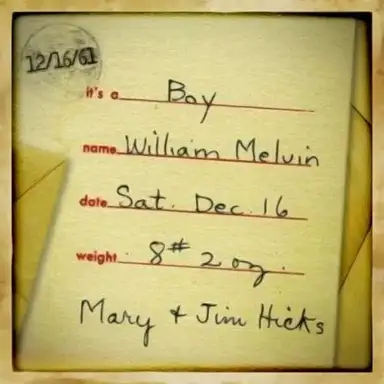 12/16/61
it's a Boy
name William Melvin
date Sat. Dec. 16
weight 8# 2 oz.
Mary + Jim Hicks